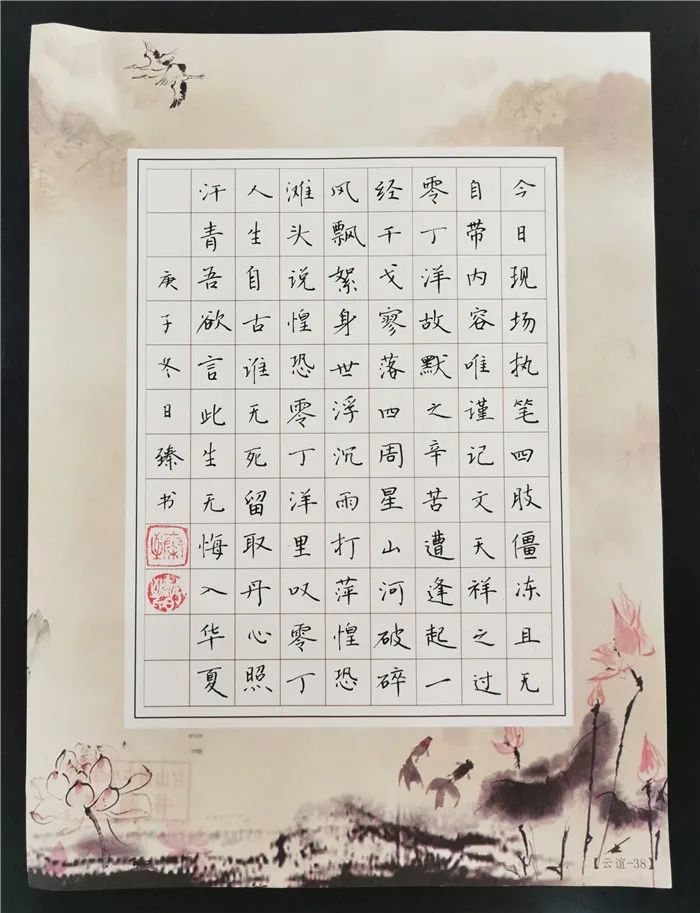 今日现场执笔四肢僵冻且无
自带内容唯谨记文天祥之过
零丁洋故默之辛苦遭逢起一
经干戈寥落四周星山河破碎
风飘絮身世浮沉雨打萍惶恐
滩头说惶恐零丁洋里叹零丁
人生自古谁无死留取丹心照
汗青吾欲言此生无悔入华夏
庚子冬日臻书
【云谊-38】